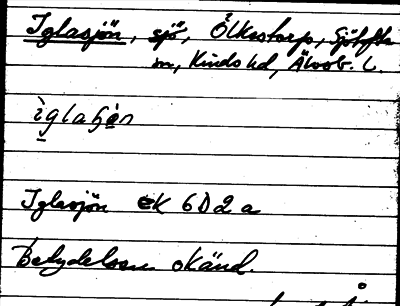 Iglasjön, sjö, Ölkestorp, Sjötofta
sn, Kinds hd, Älvsb. l.
Iglasjön ek 6D2a
Betydelsen okänd.